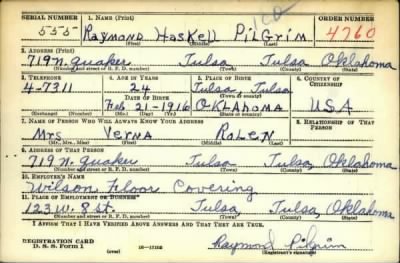 SERIAL NUMBER 1. NAME (Print) ORDER NUMBER
555 Raymond Haskell Pilgrim 4760
(First) (Middle) (Last)
2. ADDRESS (Print)
719 n. Quaker Tulsa Tulsa Oklahoma
(Number and street or R. F. D. number) (Town) (County) (State)
3. TELEPHONE 4. AGE IN YEARS 5. PLACE OF BIRTH 6. COUNTRY OF CITIZENSHIP
4-7311 24 Tulsa, Tulsa
DATE OF BIRTH (Town or county)
Feb 21-1916 Oklahoma USA
(Exchange) (Number) (Mo.) (Day) (Yr.) (State or country)
7. NAME OF PERSON WHO WILL ALWAYS KNOW YOUR ADDRESS 8. RELATIONSHIP OF THAT PERSON
Mrs Verna Rolen
(Mr., Mrs., Miss) (First) (Middle) (Last)
9. ADDRESS OF THAT PERSON
719 n. Quaker Tulsa Tulsa, Oklahoma
(Number and street or R. F. D. number) (Town) (County) (State)
10. EMPLOYER'S NAME
Wilson Floor Covering
11. PLACE OF EMPLOYMENT OR BUSINESS
123 W. 8 st. Tulsa, Tulsa, Oklahoma
(Number and street or R. F. D. number) (Town) (County) (State)
I AFFIRM THAT I HAVE VERIFIED ABOVE ANSWERS AND THAT THEY ARE TRUE.
REGISTRATION CARD
D. S. S. Form 1 (over) Raymond Pilgrim
(Registrant's signature)